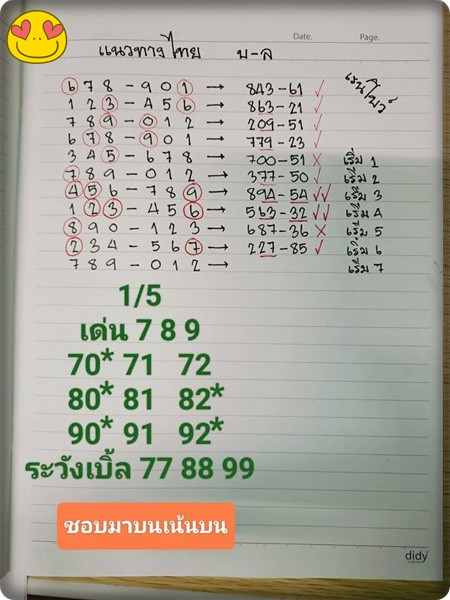 Date. Page.
แนวทางไทย บ-ล
678-901 → 843-61 ✓
123-456 → 863-21 ✓
789-012 → 209-51 ✓
678-901 → 779-23 ✓
345-678 → 700-51 × เริ่ม 1
789-012 → 377-50 ✓ เริ่ม 2
456-789 → 894-54 ✓✓ เริ่ม 3
123-456 → 563-32 ✓✓ เริ่ม 4
890-123 → 687-36 × เริ่ม 5
234-567 → 227-85 ✓ เริ่ม 6
789-012 → เริ่ม 7
1/5
เด่น 7 8 9
70* 71 72
80* 81 82*
90* 91 92*
ระวังเบิ้ล 77 88 99
ชอบมาบนเน้นบน
didy